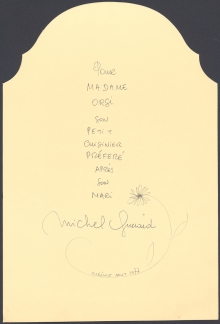 Pour
MADAME
ORSI
SON
PETIT
CUISINIER
PRÉFÉRÉ
APRÈS
SON
MARI
Michel Guérard